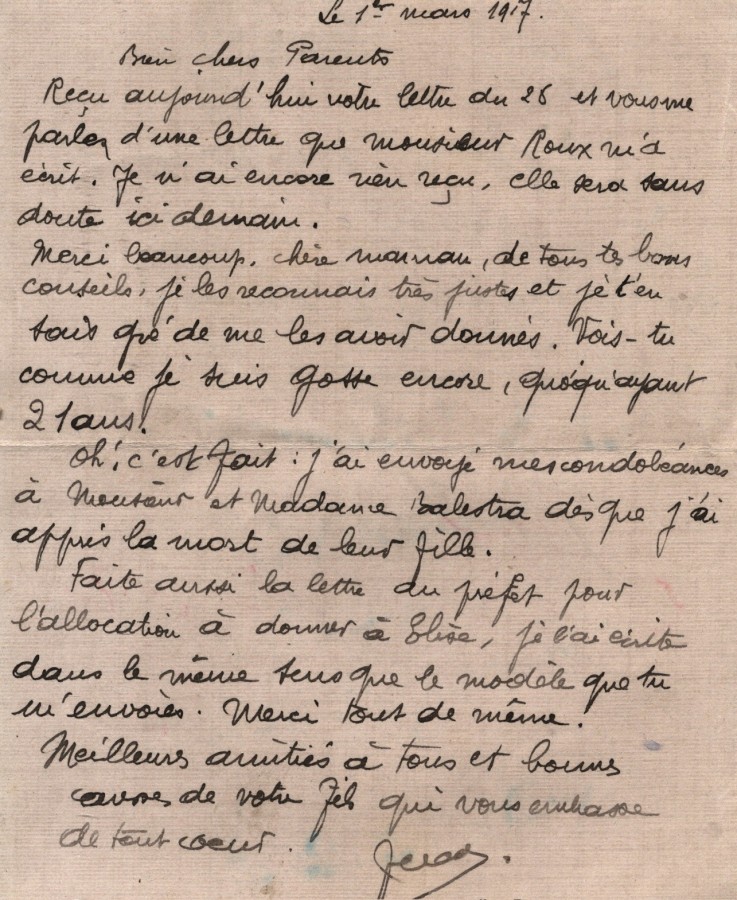 Le 1er mars 1917.
Bien chers Parents
Reçu aujourd'hui votre lettre du 26 et vous me
parlez d'une lettre que monsieur Roux m'a
écrit. Je n'ai encore rien reçu, elle sera sans
doute ici demain.
Merci beaucoup, chère maman, de tous tes bons
conseils, je les reconnais très justes et je t'en
sais gré de me les avoir donnés. Vois-tu
comme je suis gosse encore, quoiqu'ayant
21 ans!
Oh! c'est fait: j'ai envoyé mes condoléances
à Monsieur et Madame Balestra dès que j'ai
appris la mort de leur fille.
Faite aussi la lettre au préfet pour
l'allocation à donner à Elise, je l'ai écrite
dans le même sens que le modèle que tu
m'envoies. Merci tout de même.
Meilleures amitiés à tous et bonnes
de votre fils qui vous embrasse
de tout coeur.